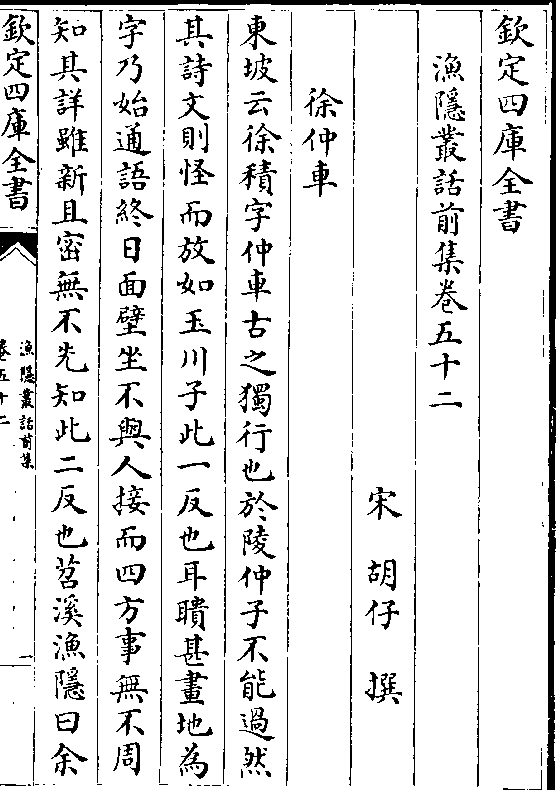 欽定四庫全書
漁隱叢話前集卷五十二
宋 胡仔 撰
徐仲車
東坡云徐積字仲車古之獨行也於陵仲子不能過然
其詩文則怪而放如玉川子此一反也耳聵甚畫地為
字乃始通語終日面壁坐不與人接而四方事無不周
知其詳雖新且密無不先知此二反也苕溪漁隱曰余
欽定四庫全書
漁隱叢話前集
卷五十二
一